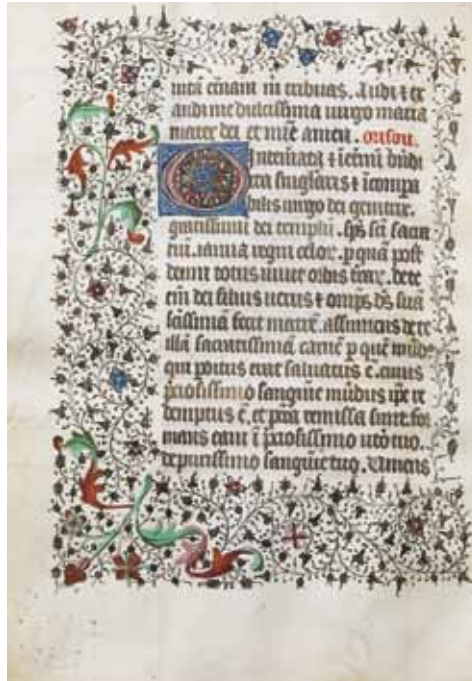 vitā eternam m tribuas. Audi et ex
audi me dulcissima virgo maria
mater dei et mīe amen. orison.
O Intemerata et ī eternū bn̄di
cta singlaris et īcompa
bilis virgo dei genitrix.
gratissimū dei templū. sp̄s sc̄i sacra
riū. ianua regni celor. p quā post
deum totus vivit orbis trar. de te
eīn dei filius verus et omp̄s ds̄ suā
sc̄issimā fecit matrē. assumens de te
illā sacratissimā carnē p quē mūd
qui pditus erat salvatus ē. cuius
p̄ciosissimo sanguīe mūdus ip̄e re
demptus ē. et pctā remissa sunt. for
matus
ī p̄ciosissimo utō tuo.
de purissimo sanguīe tuo.